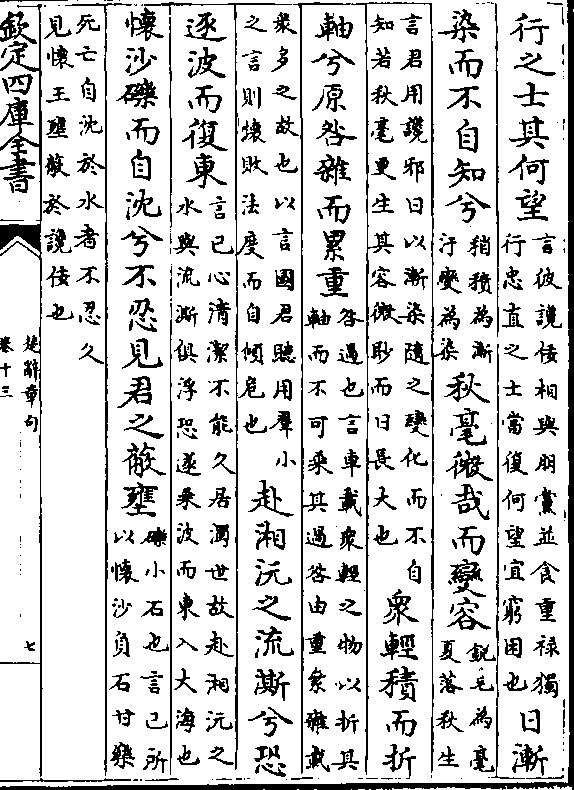 行之士其何望言彼讒佞相與朋黨並食重禄獨行忠直之士當復何望宜窮困也日漸
染而不自知兮稍積為漸汙變為染秋毫微哉而變容銳毛為毫夏落秋生
言君用讒邪日以漸染隨之變化而不自知若秋毫更生其容微眇而日長大也衆輕積而折
軸兮原咎雜而累重咎過也言車載衆輕之物以折其軸而不可乘其過咎由重絫雜載
衆多之故也以言國君聽用羣小之言則壊敗法度而自傾危也赴湘沅之流澌兮恐
逐波而復東言己心清潔不能久居濁世故赴湘沅之水與流澌俱浮恐遂乘波而東入大海也
懷沙礫而自沈兮不忍見君之蔽壅礫小石也言己所以懷沙負石甘樂
死亡自沈於水者不忍久見懷王壅蔽於讒佞也
欽定四庫全書
楚辭章句
卷十三
七